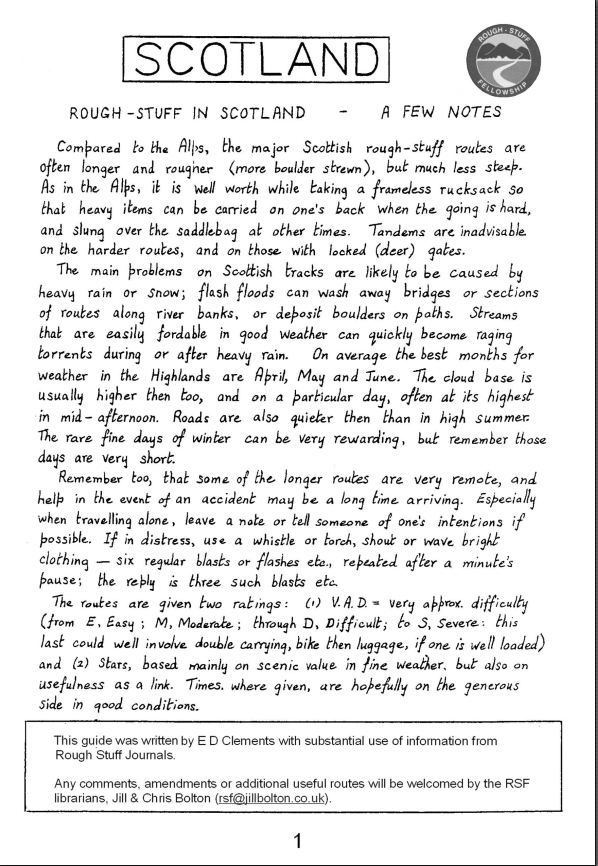 SCOTLAND
ROUGH-STUFF
FELLOWSHIP
ROUGH-STUFF IN SCOTLAND - A FEW NOTES
Compared to the Alps, the major Scottish rough-stuff routes are
often longer and rougher (more boulder strewn), but much less steep.
As in the Alps, it is well worth while taking a frameless rucksack so
that heavy items can be carried on one's back when the going is hard,
and slung over the saddlebag at other times. Tandems are inadvisable
on the harder routes, and on those with locked (deer) gates.
The main problems on Scottish tracks are likely to be caused by
heavy rain or snow; flash floods can wash away bridges or sections
of routes along river banks, or deposit boulders on paths. Streams
that are easily fordable in good weather can quickly become raging
torrents during or after heavy rain. On average the best months for
weather in the Highlands are April, May and June. The cloud base is
usually higher then too, and on a particular day, often at its highest
in mid-afternoon. Roads are also quieter then than in high summer.
The rare fine days of winter can be very rewarding, but remember those
days are very short.
Remember too, that some of the longer routes are very remote, and
help in the event of an accident may be a long time arriving. Especially
when travelling alone, leave a note or tell someone of one's intentions if
possible. If in distress, use a whistle or torch, shout or wave bright
clothing — six regular blasts or flashes etc., repeated after a minute's
pause; the reply is three such blasts etc.
The routes are given two ratings: (1) V.A.D. = very approx. difficulty
(from E, Easy; M, Moderate; through D, Difficult; to S, Severe: this
last could well involve double carrying, bike then luggage, if one is well loaded)
and (2) Stars, based mainly on scenic value in fine weather, but also on
usefulness as a link. Times, where given, are hopefully on the generous
side in good conditions.
This guide was written by E D Clements with substantial use of information from
Rough Stuff Journals.
Any comments, amendments or additional useful routes will be welcomed by the RSF
librarians, Jill & Chris Bolton (rsf@jillbolton.co.uk).
1